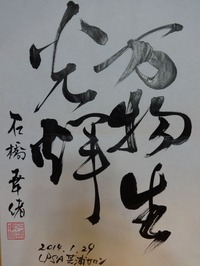 万物生
光輝
石橋幸緒
2014.1.29
LPSA芝浦サロン